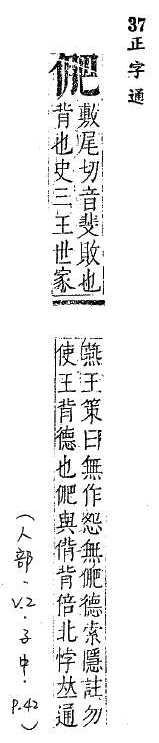 37
正字通
俷
敷尾切音斐敗也
背也史三王世家
燕王策曰無作怨無俷德索隱註勿
使王背德也俷與偝背倍北悖𠀤通
(人部.V.2.子中.P.42)